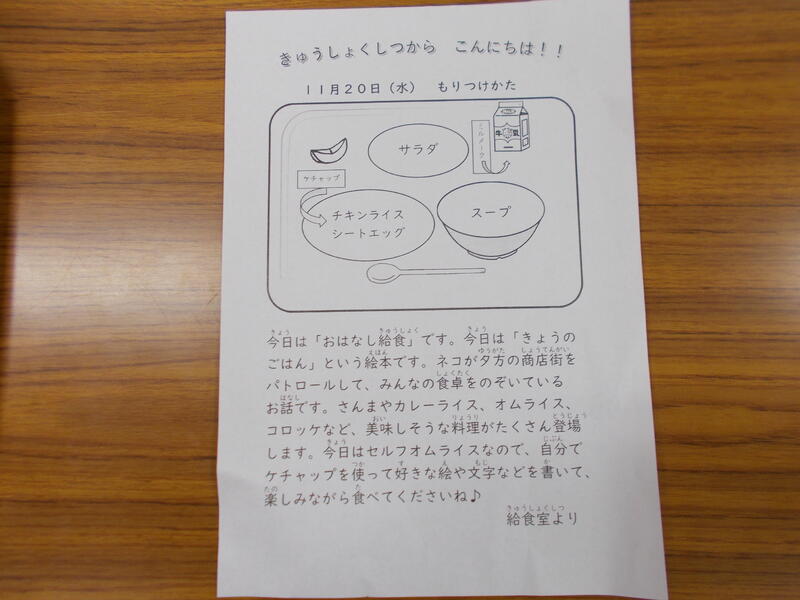 きゅうしょくしつから　こんにちは！！
１１月２０日（水）　もりつけかた
サラダ
ミルメーク
牛乳
ケチャップ
チキンライス
シートエッグ
スープ
今日は「おはなし給食」です。今日は「きょうの
ごはん」という絵本です。ネコが夕方の商店街を
パトロールして、みんなの食卓をのぞいている
お話です。さんまやカレーライス、オムライス、
コロッケなど、美味しそうな料理がたくさん登場
します。今日はセルフオムライスなので、自分で
ケチャップを使って好きな絵や文字などを書いて、
楽しみながら食べてくださいね♪
給食室より